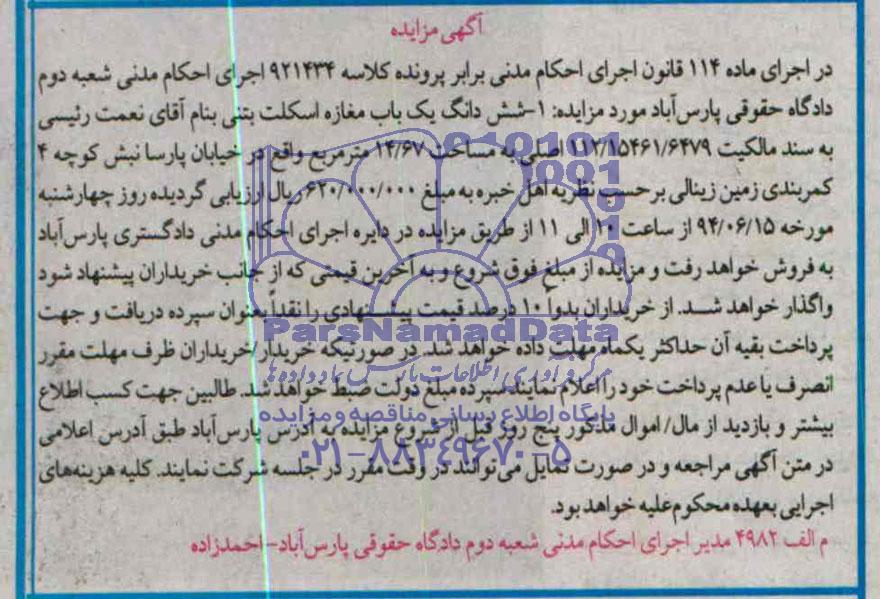 آگهی مزایده
در اجرای ماده ۱۱۴ قانون اجرای احکام مدنی برابر پرونده کلاسه ۹۲۱۴۳۴ اجرای احکام مدنی شعبه دوم
دادگاه حقوقی پارس‌آباد مورد مزایده: ۱-شش دانگ یک باب مغازه اسکلت بتنی بنام آقای نعمت رئیسی
به سند مالکیت ۱۱۲/۱۵۴۶۱/۶۴۷۹ اصلی به مساحت ۱۴/۶۷ مترمربع واقع در خیابان پارسا نبش کوچه ۴
کمربندی زمین زینالی برحسب نظریه اهل خبره به مبلغ ۶۲۰/۰۰۰/۰۰۰ ریال ارزیابی گردیده روز چهارشنبه
مورخه ۹۴/۰۶/۱۵ از ساعت ۱۰ الی ۱۱ از طریق مزایده در دایره اجرای احکام مدنی دادگستری پارس‌آباد
به فروش خواهد رفت و مزایده از مبلغ فوق شروع و به آخرین قیمتی که از جانب خریداران پیشنهاد شود
واگذار خواهد شد. از خریداران بدوا ۱۰ درصد قیمت پیشنهادی را نقداً بعنوان سپرده دریافت و جهت
ParsNamadData
پرداخت بقیه آن حداکثر یکماه مهلت داده خواهد شد. در صورتیکه خریدار/خریداران ظرف مهلت مقرر
مرکز فرآوری اطلاعات پارس نماد داده‌ها
انصرف یا عدم پرداخت خود را اعلام نمایند سپرده مبلغ دولت ضبط خواهد شد. طالبین جهت کسب اطلاع
پایگاه اطلاع رسانی مناقصه و مزایده
بیشتر و بازدید از مال/اموال مذکور پنج روز قبل از شروع مزایده به آدرس پارس‌آباد طبق آدرس اعلامی
۰۲۱-۸۸۳۴۹۶۷۰-۵
در متن آگهی مراجعه و در صورت تمایل می‌توانند در وقت مقرر در جلسه شرکت نمایند. کلیه هزینه‌های
اجرایی بعهده محکوم‌علیه خواهد بود.
م الف ۴۹۸۲ مدیر اجرای احکام مدنی شعبه دوم دادگاه حقوقی پارس‌آباد-احمدزاده